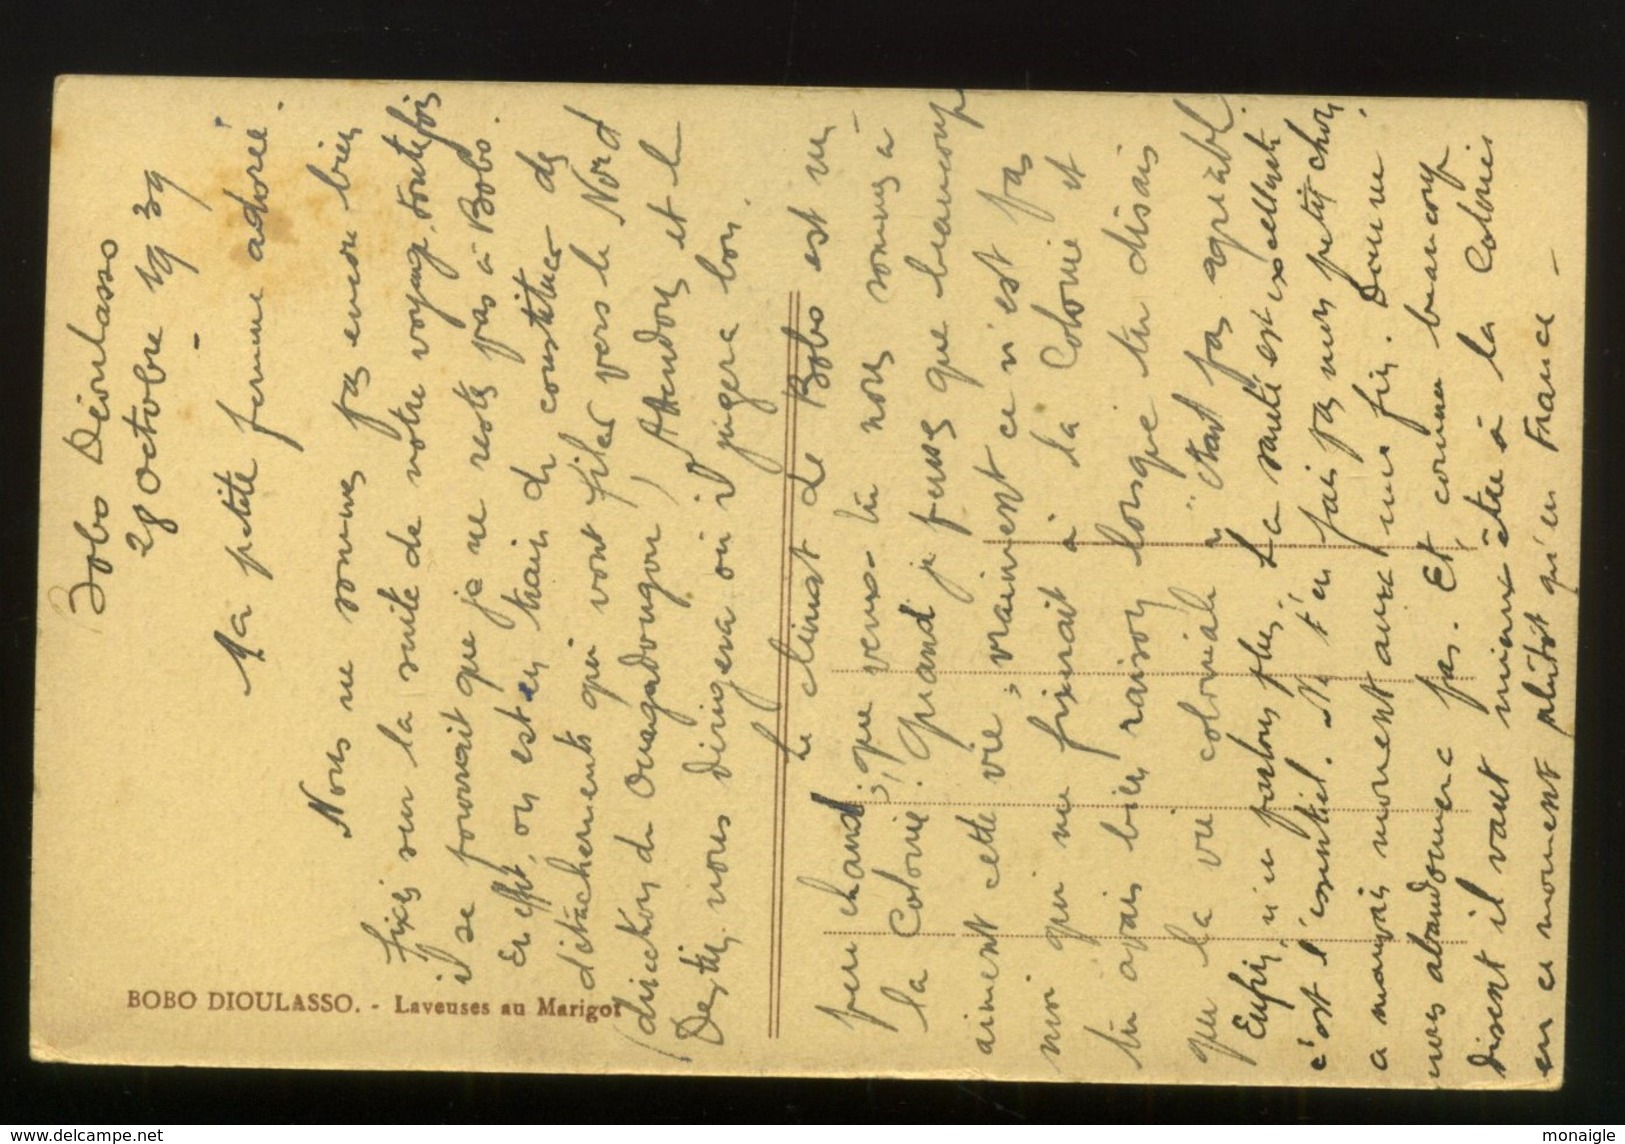 Bobo Dioulasso
28 Octobre 1939
-
Ma petite femme adorée.
Nous ne sommes pas encore bien
fixés sur la suite de notre voyage, toutefois
il se pourrait que je ne reste pas à Bobo.
En effet, on est en train de constituer des
détachements qui vont filer vers le Nord
(direction de Ouagadougou) Attendons et le
Destin nous dirigera où il jugera bon.
Le climat de Bobo est un
peu chaud; que veux-tu nous sommes à
la Colonie! Quand je pense que beaucoup
aiment cette vie, vraiment ce n'est pas
moi qui me fixerait à la Colonie et
tu avais bien raison lorsque tu disais
que la vie coloniale n'était pas agréable.
Enfin, n'en parlons plus, la santé est excellente
c'est l'essentiel. Ne t'en fais pas mon petit chou
a mauvais moment aura une fin. Dieu ne
nous abandonnera pas. Et comme beaucoup
disent il vaut mieux être à la Colonie
en ce moment plutôt qu'en France -
BOBO DIOULASSO. - Laveuses au Marigot
monaigle